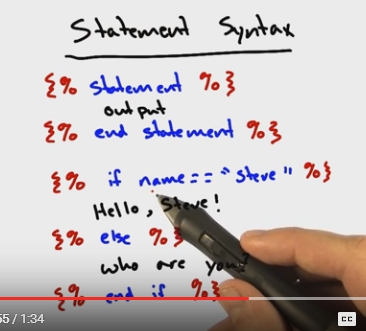 Statement Syntax
{% statement %}
output
{% end statement %}
{% if name == "steve" %}
Hello, Steve!
{% else %}
who are you?
{% end if %}
55 / 1:34
CC